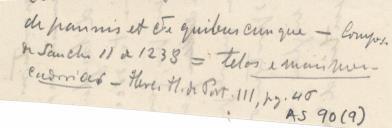 de pannis et de quibus cunque — Compos.
de Sancho II de 1233 = telas e mais mer-
cadorias — Herc. H. de Port. III, pg. 46
AS 90(9)